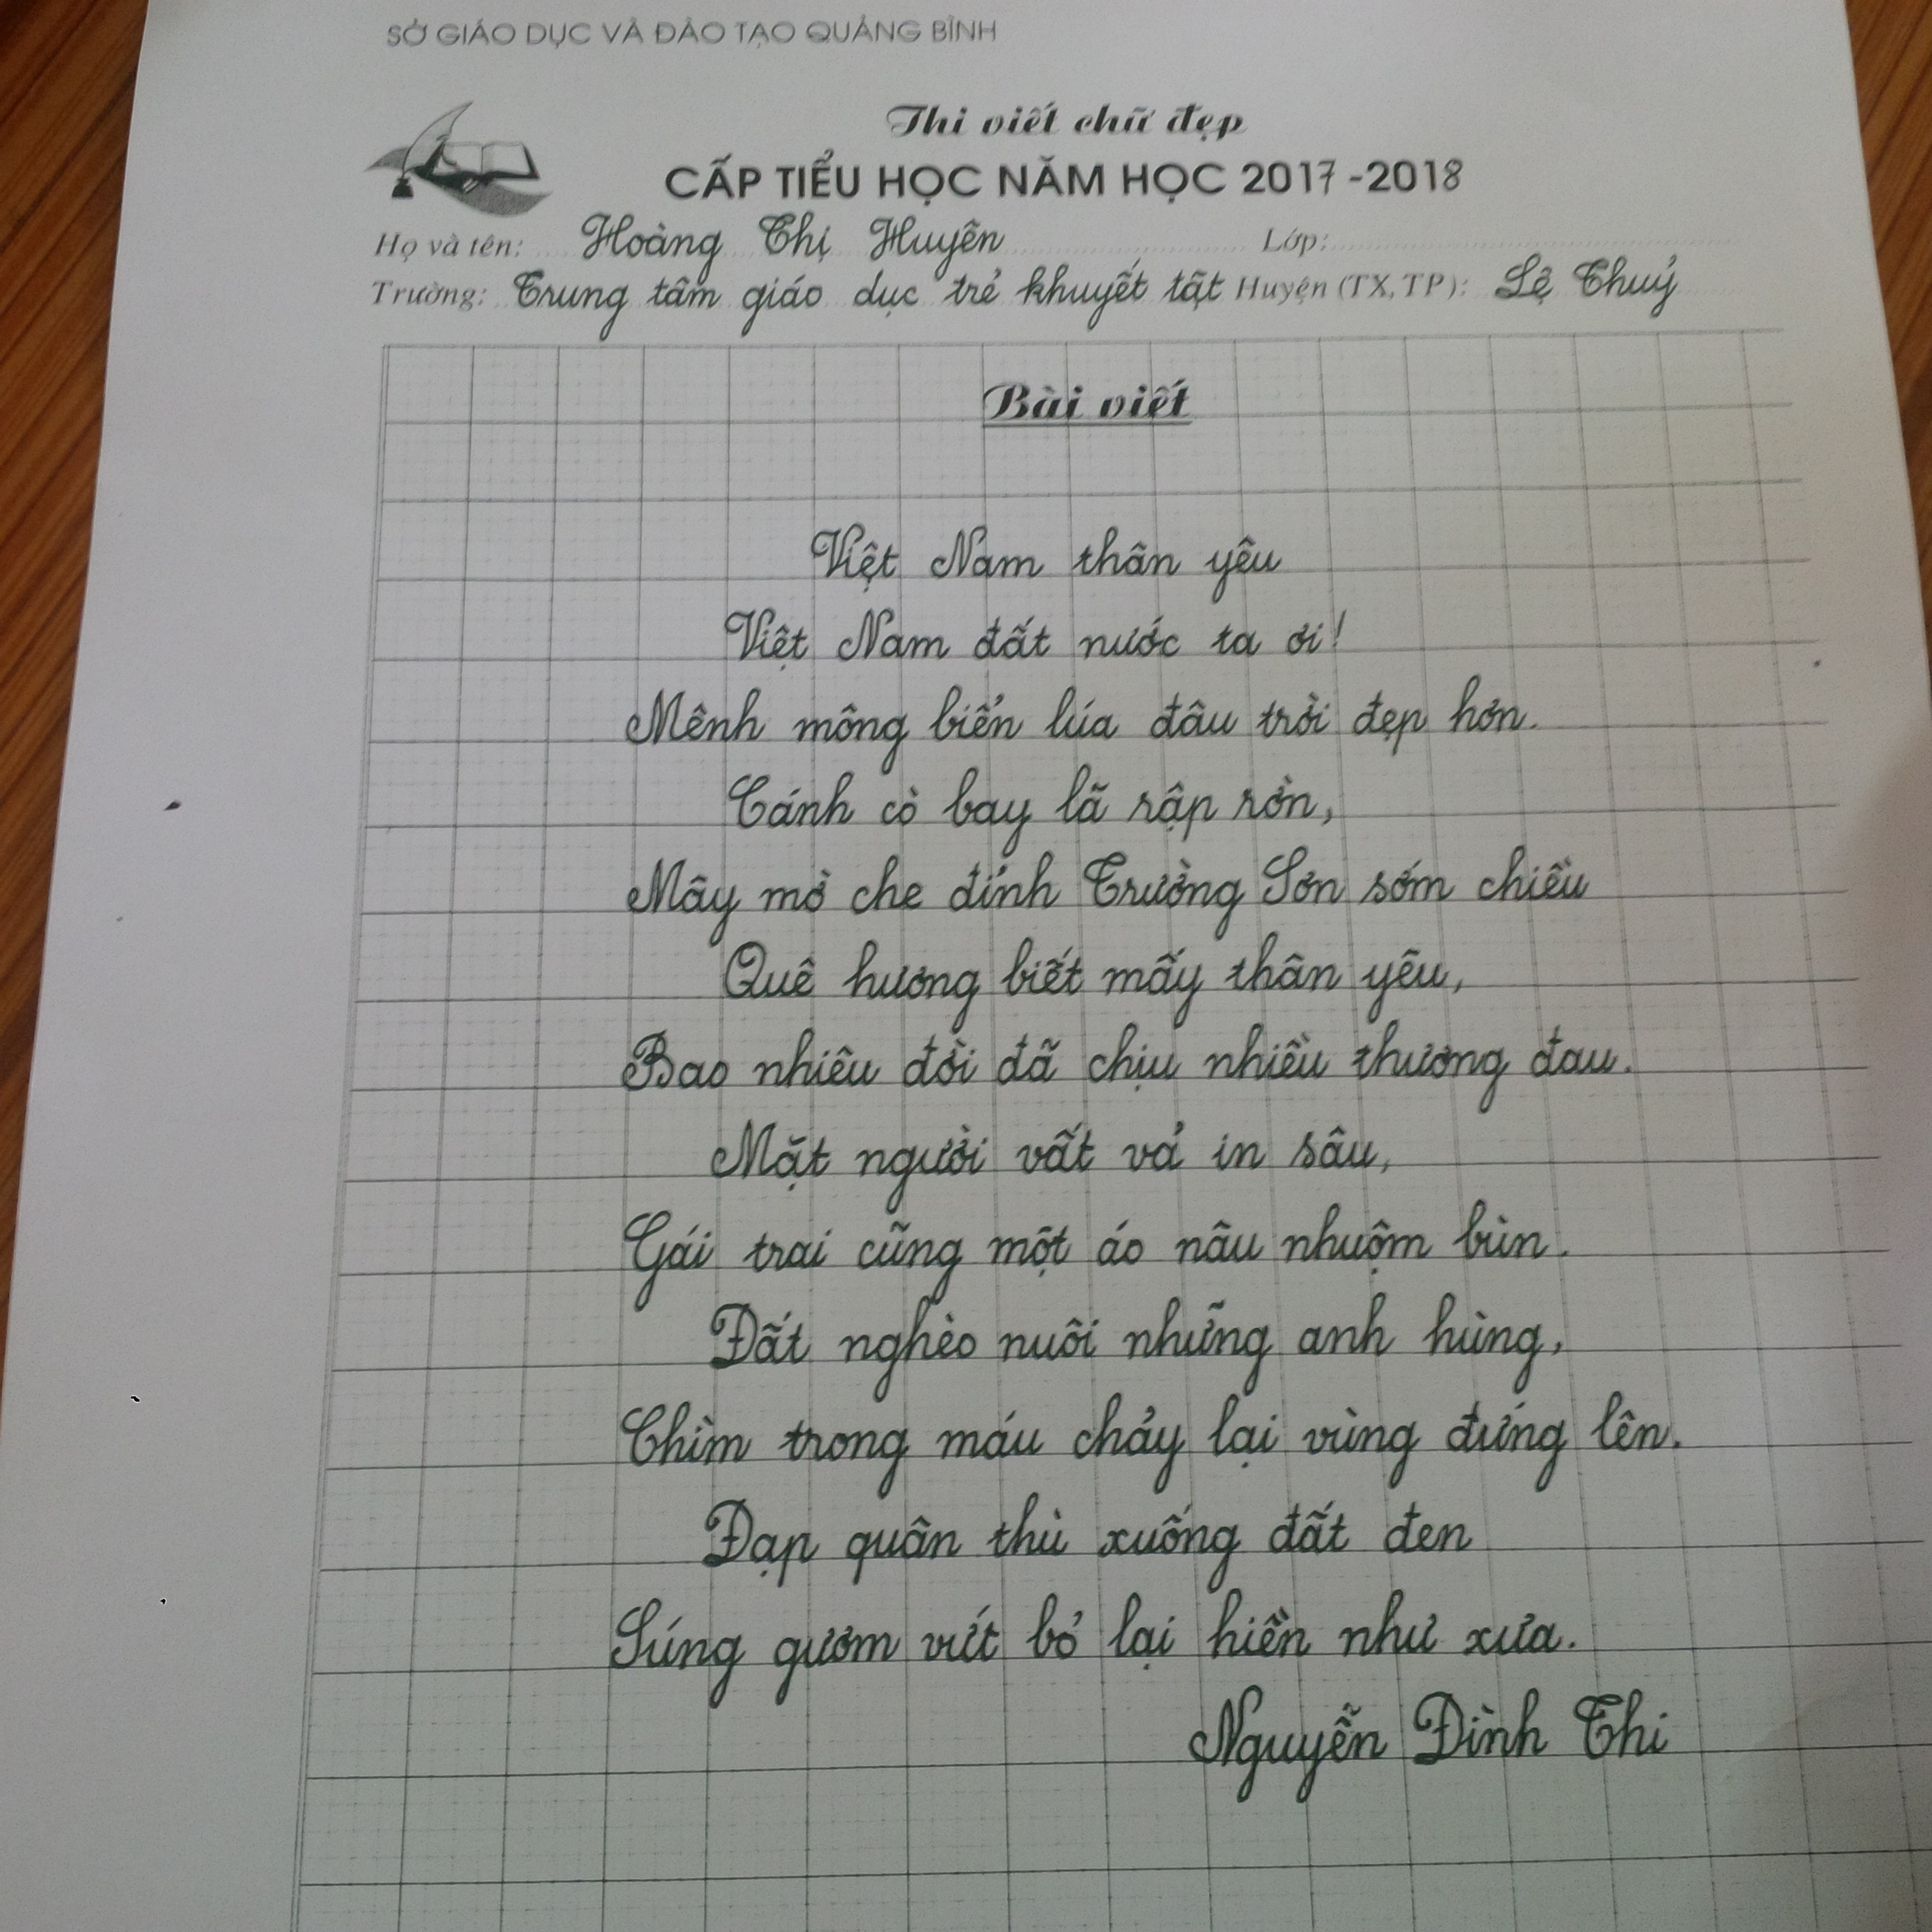 SỞ GIÁO DỤC VÀ ĐÀO TẠO QUẢNG BÌNH
Thi viết chữ đẹp
CẤP TIỂU HỌC NĂM HỌC 2017 -2018
Họ và tên: Hoàng Thị Huyền Lớp:
Trường: Trung tâm giáo dục trẻ khuyết tật Huyện (TX, TP): Lệ Thuỷ
Bài viết
Việt Nam thân yêu
Việt Nam đất nước ta ơi!
Mênh mông biển lúa đâu trời đẹp hơn.
Cánh cò bay lả rập rờn,
Mây mờ che đỉnh Trường Sơn sớm chiều
Quê hương biết mấy thân yêu,
Bao nhiêu đời đã chịu nhiều thương đau.
Mặt người vất vả in sâu,
Gái trai cũng một áo nâu nhuộm bùn.
Đất nghèo nuôi những anh hùng,
Chìm trong máu chảy lại vùng đứng lên.
Đạp quân thù xuống đất đen
Súng gươm vứt bỏ lại hiền như xưa.
Nguyễn Đình Thi